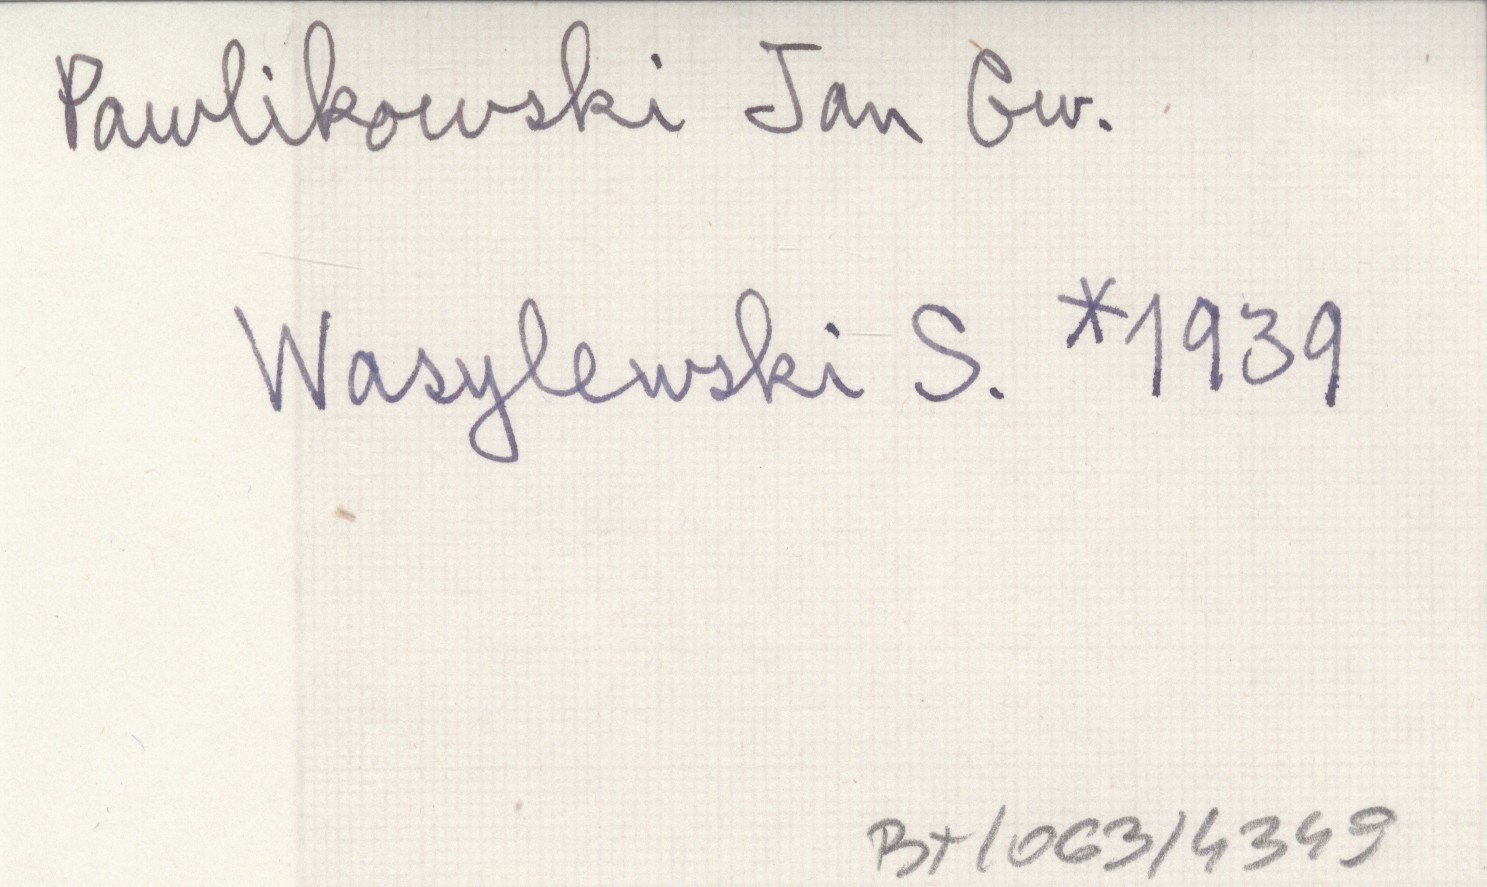 Pawlikowski Jan Gw.
Wasylewski S. *1939
Bt/063/4349